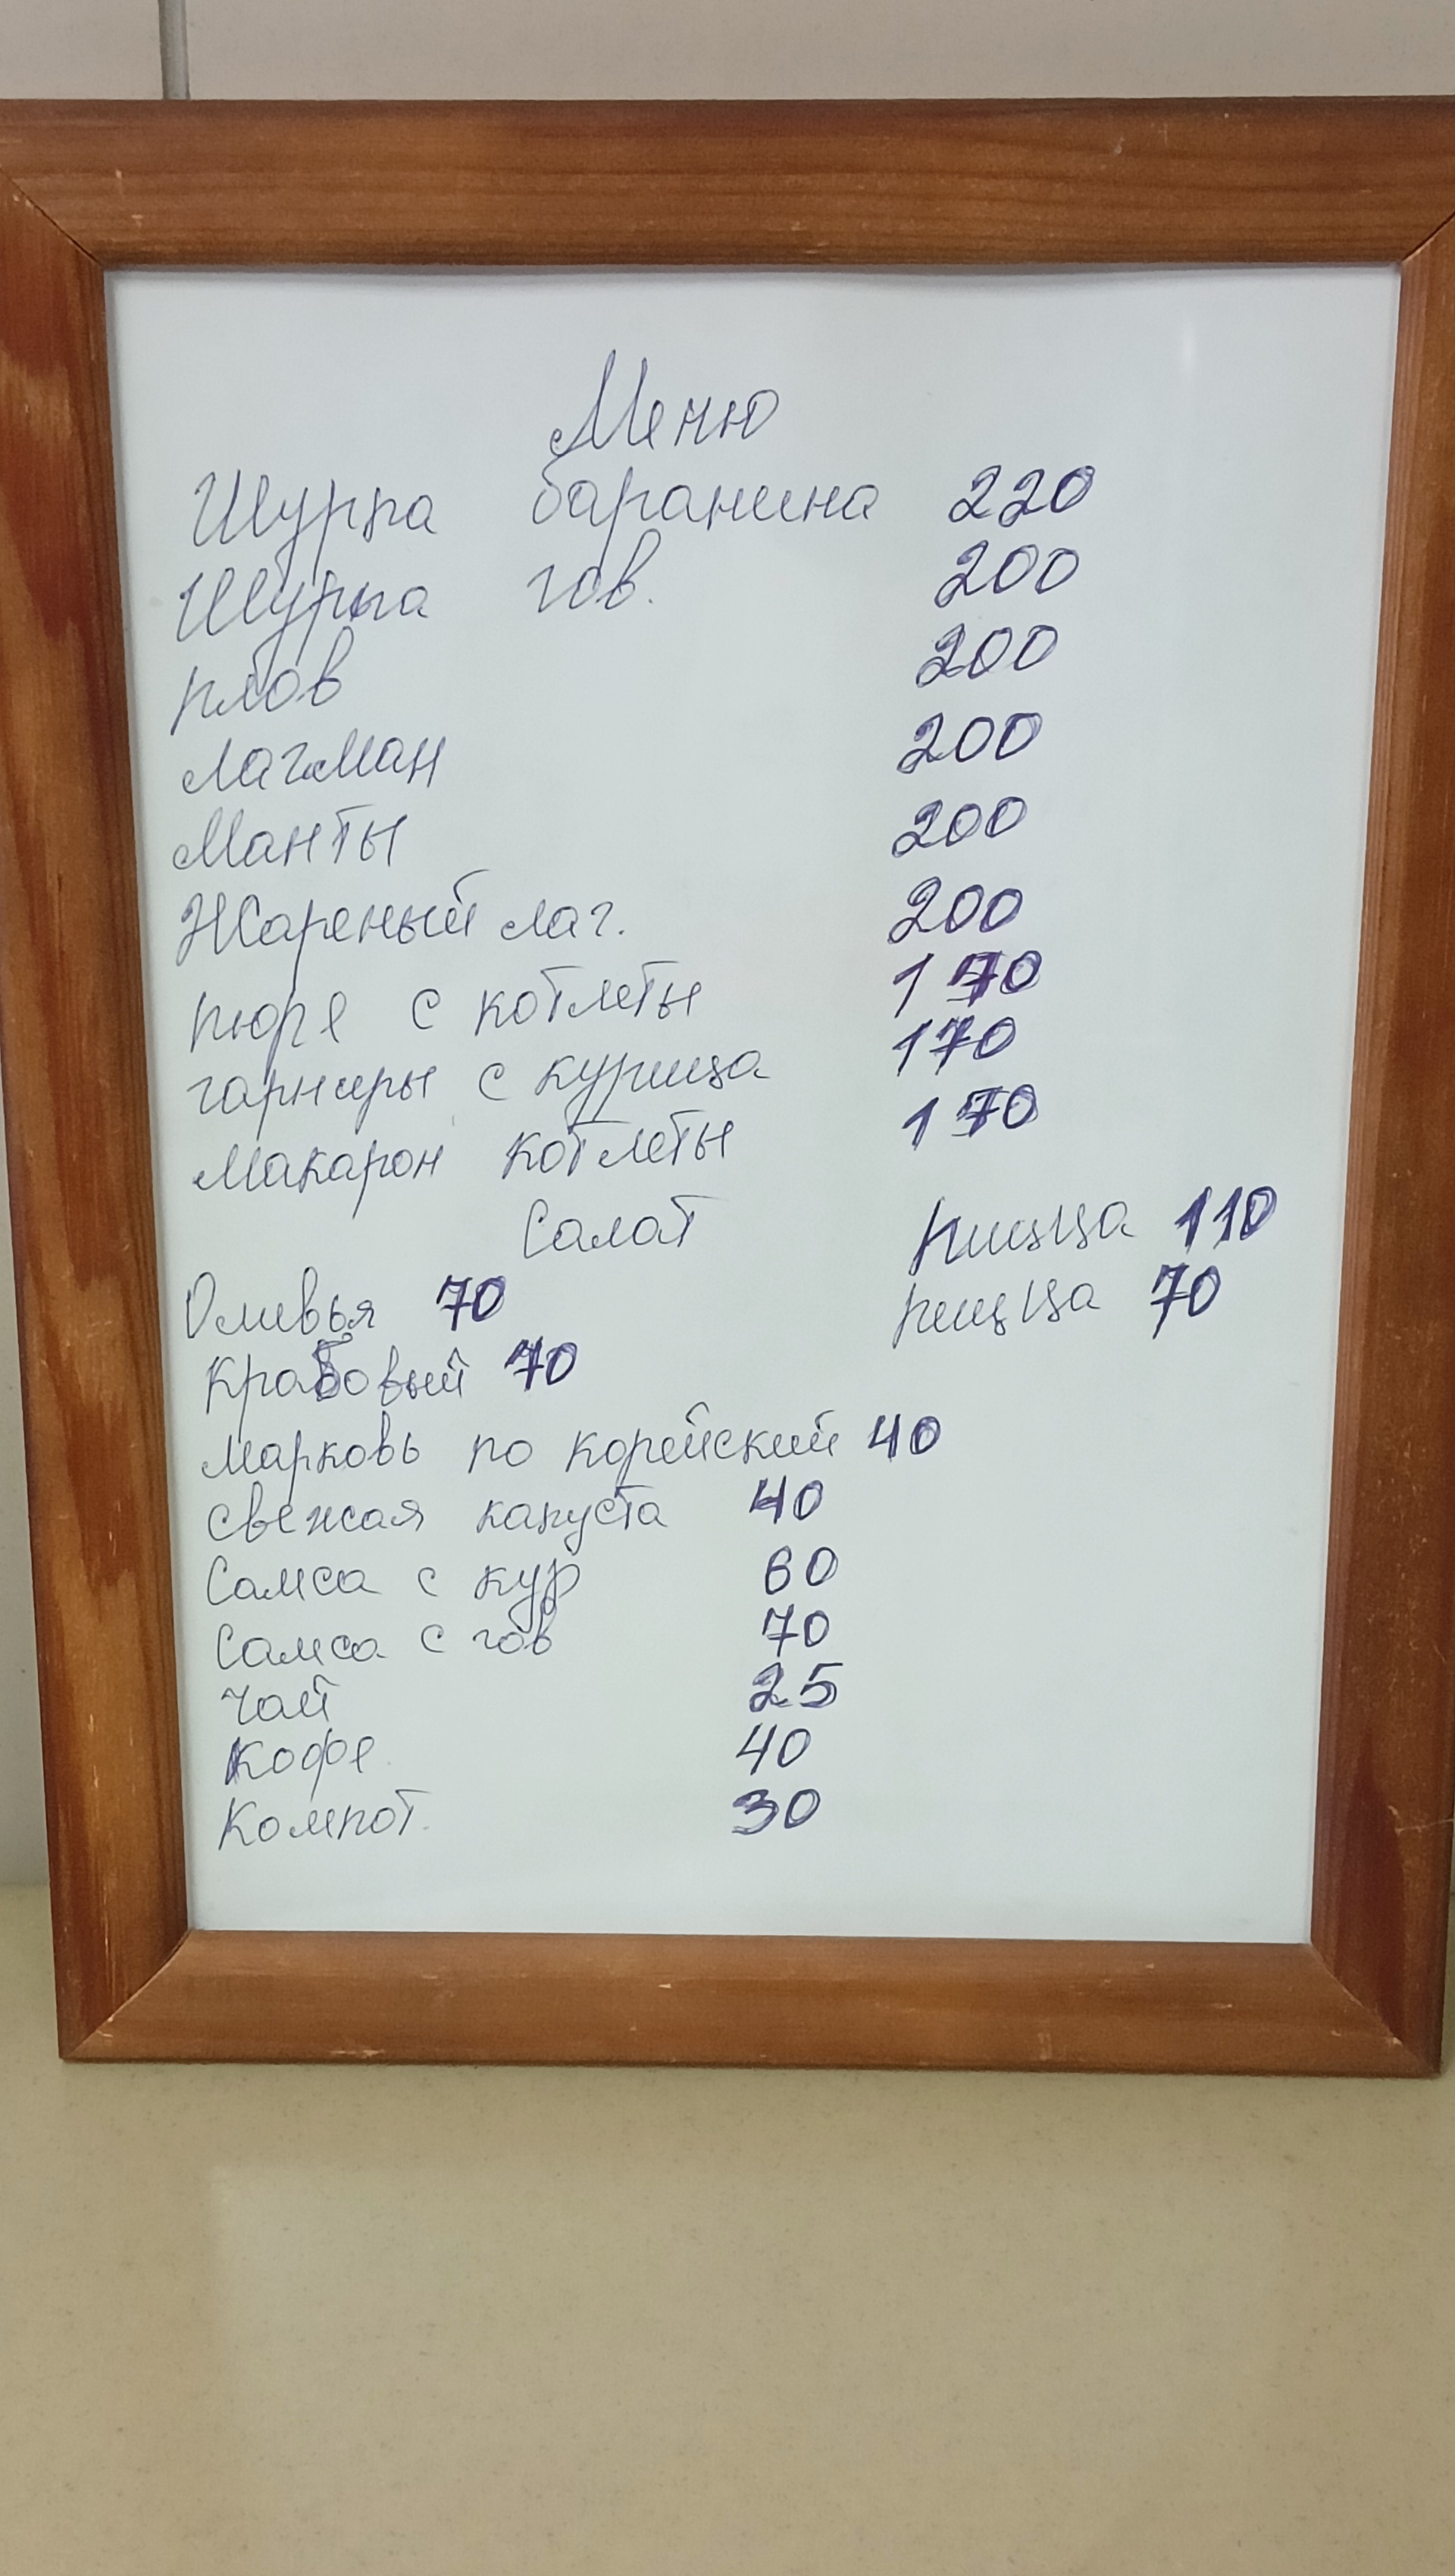 Меню
Шурпа баранина 220
Шурпа гов. 200
плов 200
лагман 200
Манты 200
Жареный лаг. 200
пюре с котлеты 170
гарниры с курица 170
макарон котлеты 170
Салат пицца 110
Оливья 70 пицца 70
Крабовый 70
марковь по корейский 40
свежая капуста 40
Самса с кур 60
Самса с гов 70
чай 25
Кофе 40
Компот. 30